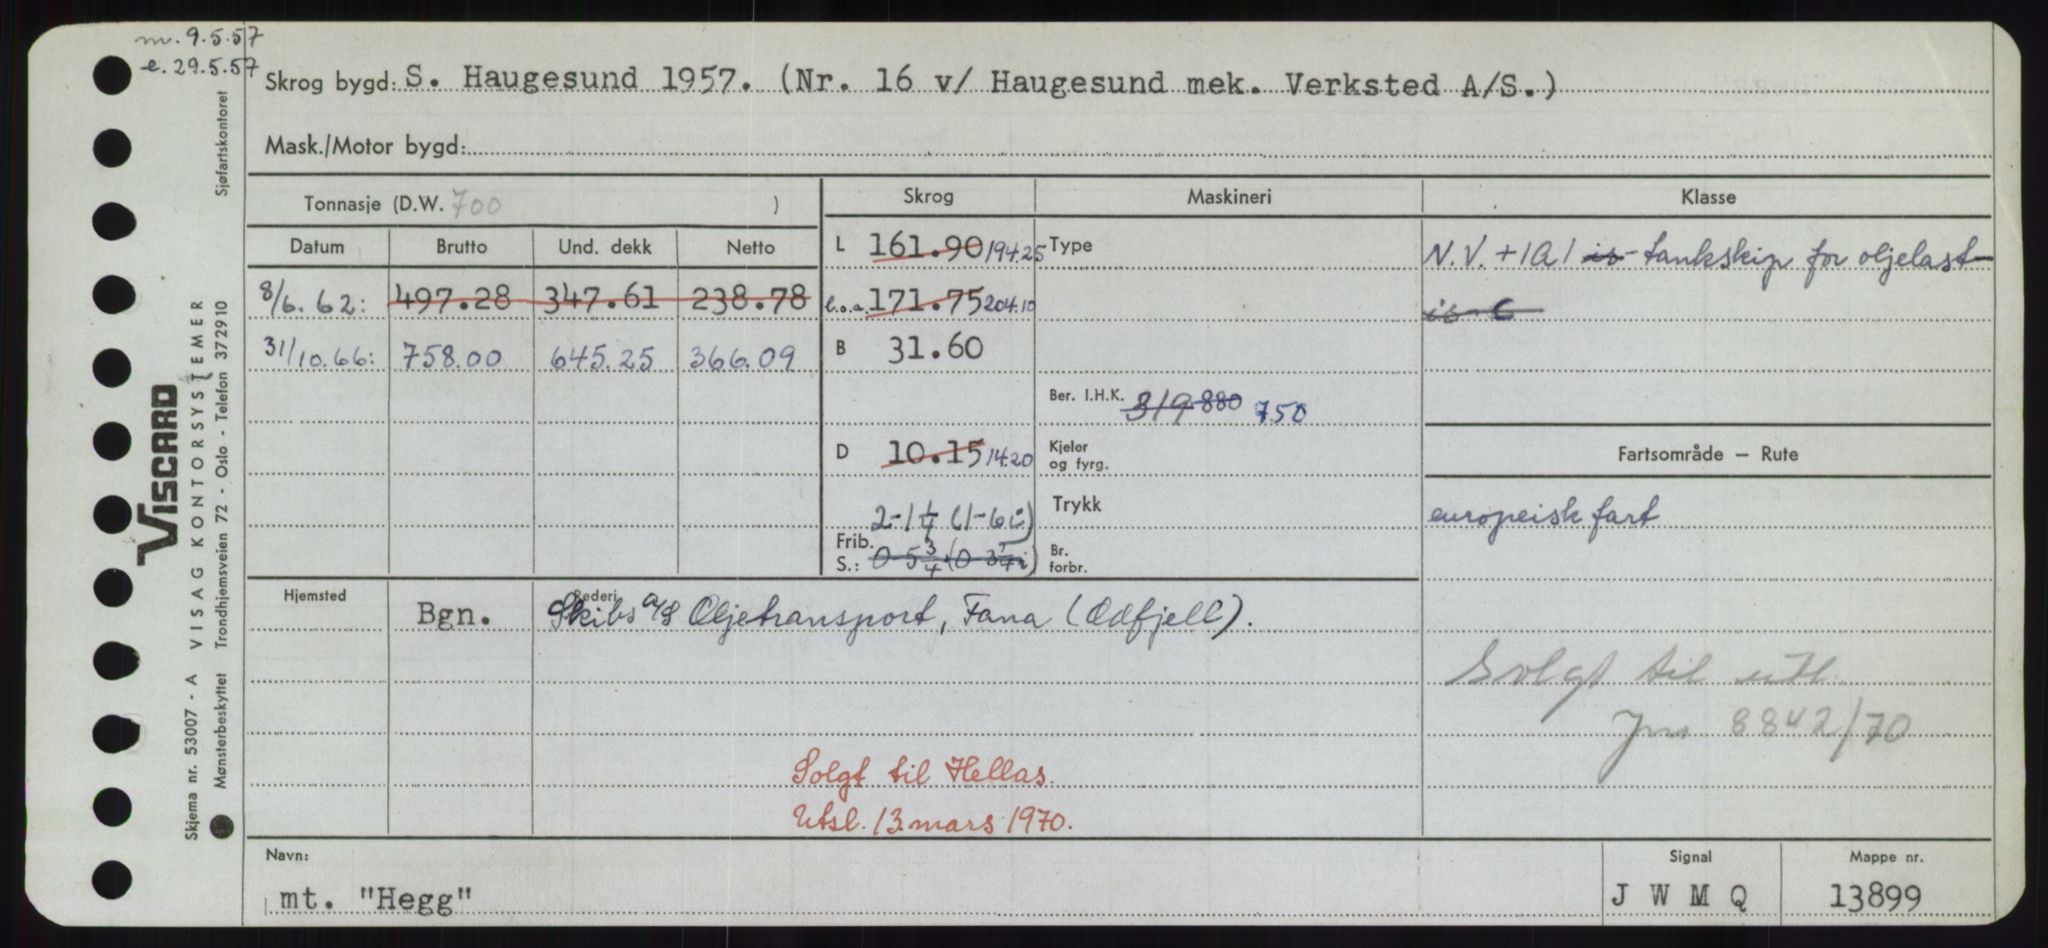 m. 9.5.57
e. 29.5.57
Skrog bygd: S. Haugesund 1957. (Nr. 16 v/ Haugesund mek. Verksted A/S.)
Mask./Motor bygd:
Tonnasje (D.W. 700 )
Datum Brutto Und. dekk Netto
8/6. 62: 497.28 347.61 238.78
31/10.66: 758.00 645.25 366.09
Skrog Maskineri Klasse
L 161.90 194.25 Type
l.o.a. 171.75 204.10
B 31.60
Ber. I.H.K. 319 880 750
D 10.15 14.20 Kjeler
og fyrg.
2-1 1/4 (1-6 i) Trykk
Frib.
S.: 0-5 3/4 (0-3 i) Br.
forbr.
N.V. +1A1 is- tankskip for oljelast-
is- C
Fartsområde – Rute
europeisk fart
Hjemsted Rederi
Bgn. Skibs A/S Oljetransport, Fana (Odfjell).
Solgt til utl.
Jnr 8842/70
Solgt til Hellas.
Utsl. 13. mars 1970.
Navn: Signal Mappe nr.
mt. "Hegg" J W M Q 13899
Sjøfartskontoret
VISCARD
VISAG KONTORSYSTEMER
Trondhjemsveien 72 - Oslo - Telefon 372910
Skjema nr. 53007 - A
Mønsterbeskyttet